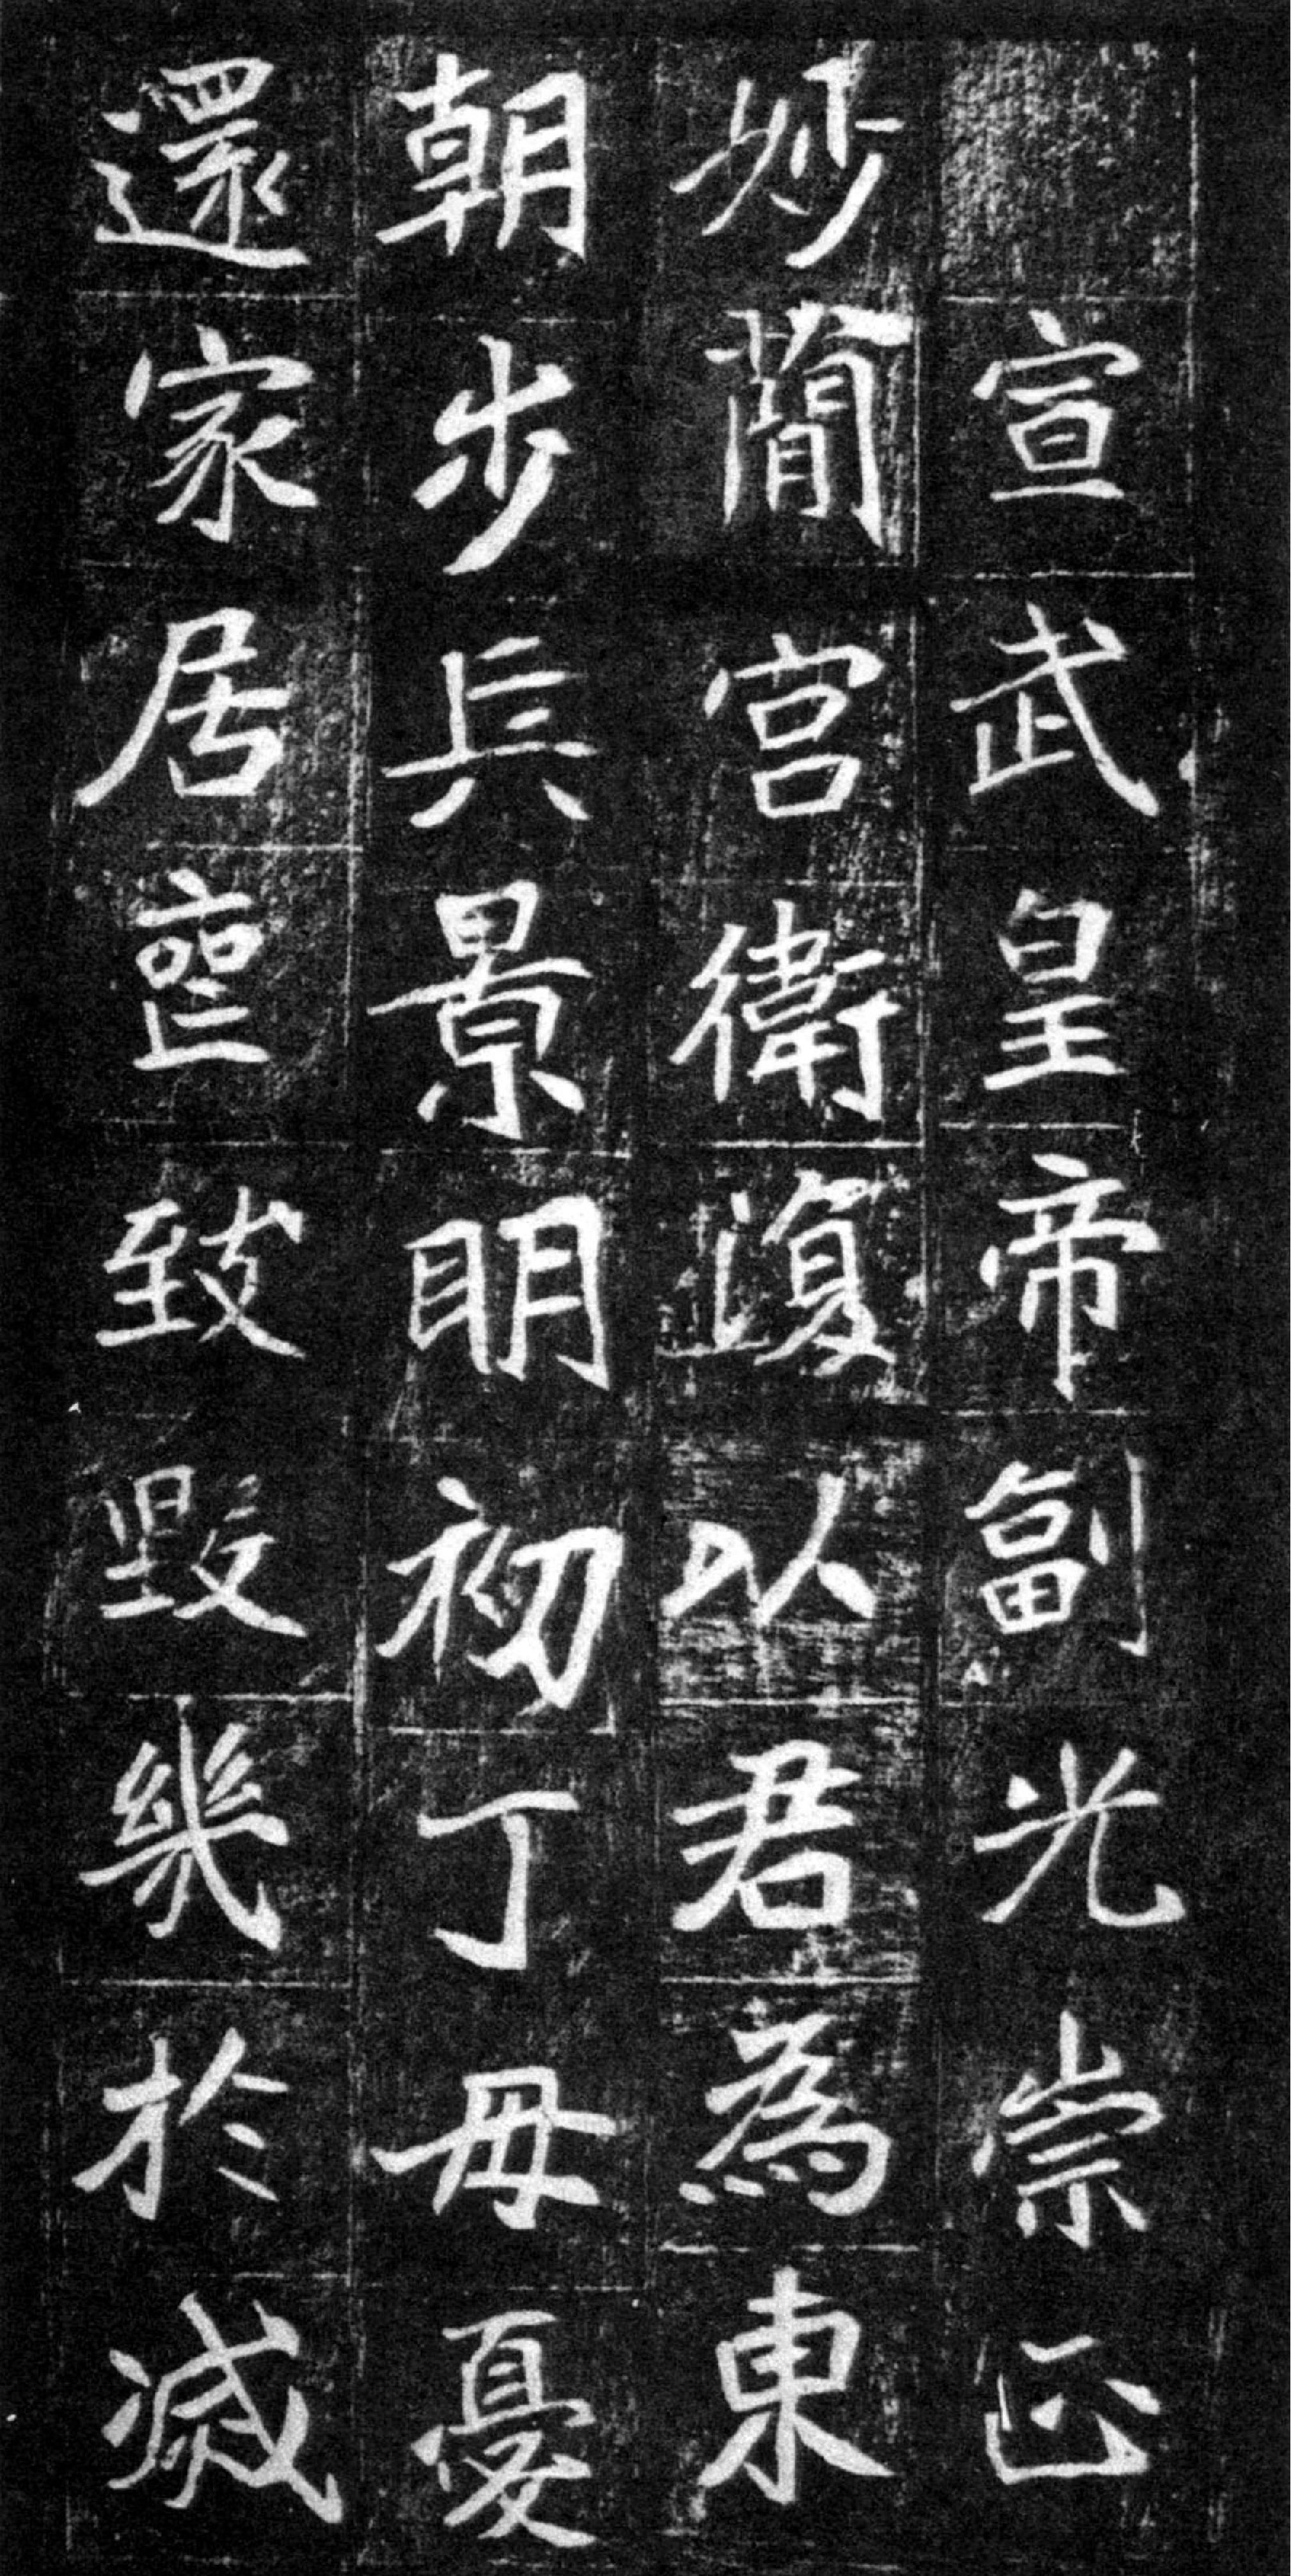 宣武皇帝副光崇正
妙蕳宮衛復以君為東
朝步兵景明初丁母憂
還家居䘮致毀幾於滅